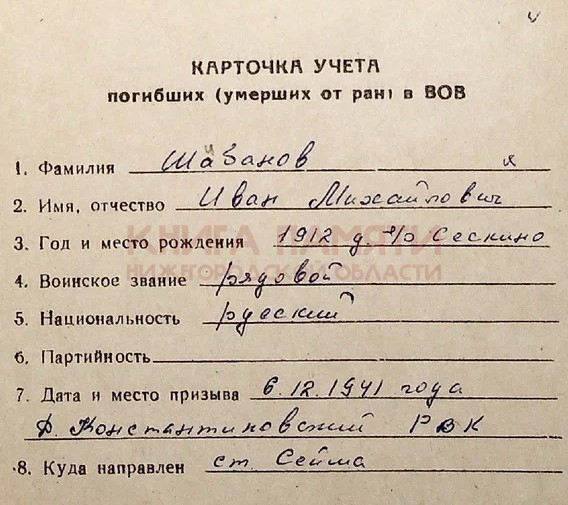 КАРТОЧКА УЧЕТА
погибших (умерших от ран) в ВОВ
1. Фамилия Шабанов
2. Имя, отчество Иван Михайлович
3. Год и место рождения 1912 д. Сескино
КНИГА ПАМЯТИ
НИЖЕГОРОДСКОЙ ОБЛАСТИ
4. Воинское звание рядовой
5. Национальность русский
6. Партийность
7. Дата и место призыва 6.12.1941 года
Д. Константиновский РВК
8. Куда направлен ст. Сейма